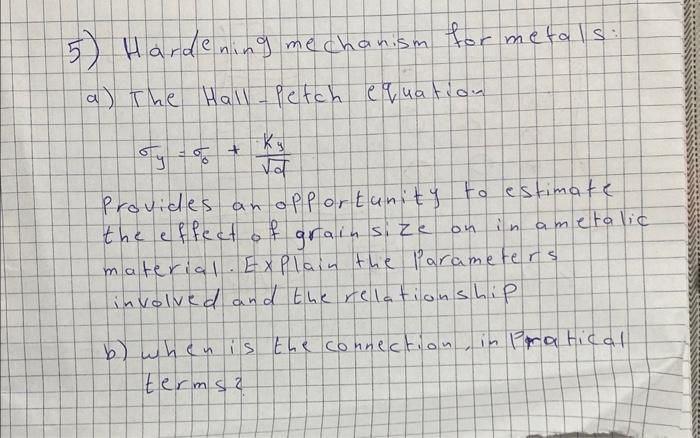 5) Hardening mechanism for metals:
a) The Hall-Petch equation
σy = σ0 + Ky/√d
Provides an opportunity to estimate
the effect of grain size on in a metalic
material. Explain the Parameters
involved and the relationship
b) when is the connection, in Pratical
terms?